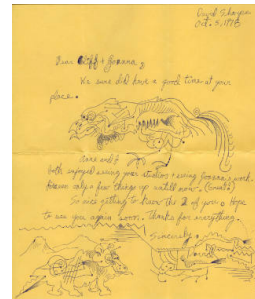 David
Oct. 5, 1978
Dear Cliff + Joanna,
We sure did have a good time at your
place.
and I
both enjoyed seeing your studios + seeing Joanna's work.
few things up until now.
So nice getting to know the 2 of you. Hope
to see you again soon. Thanks for everything.
Sincerely,